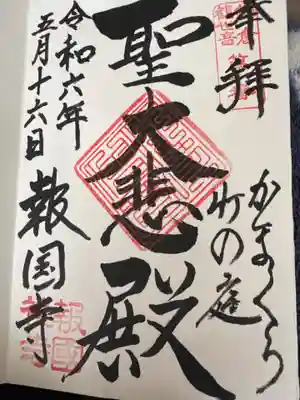 奉拝
かまくら
竹の庭
聖大悲殿
令和六年
五月十六日
報国寺